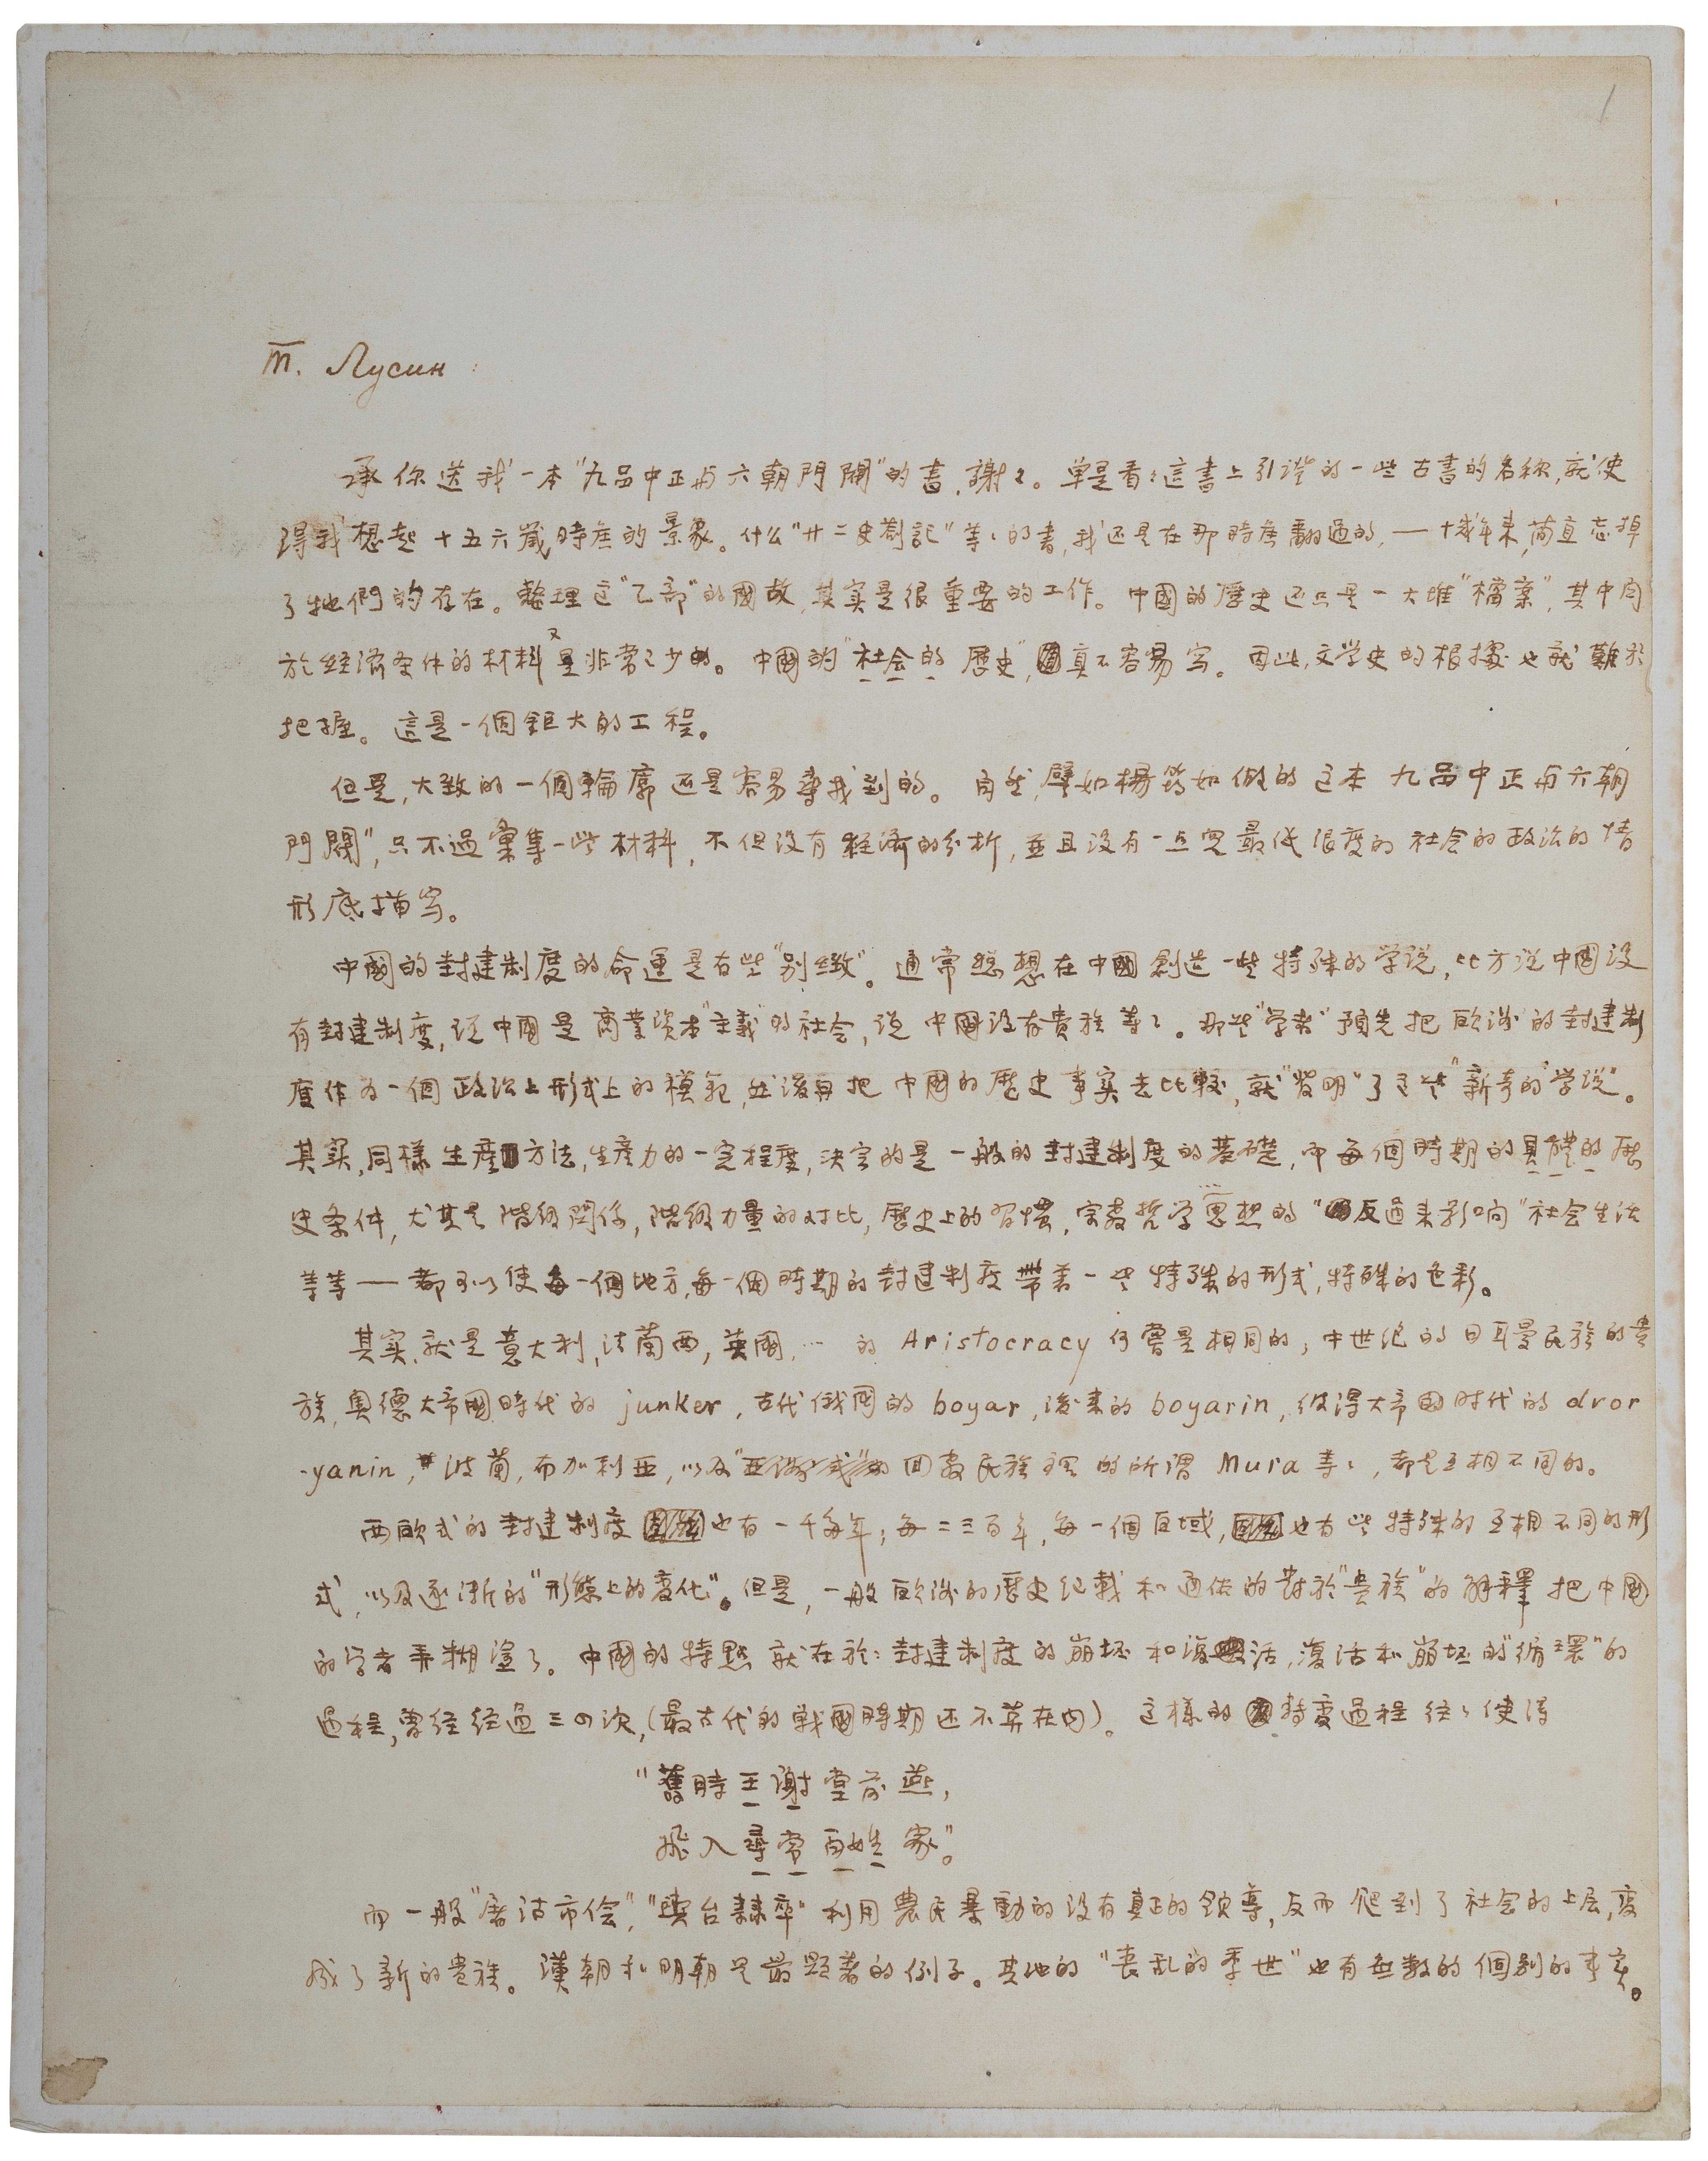 1
т. Лусин:
承你送我一本"九品中正与六朝門閥"的書,謝々。單是看々這書上引證的一些古書的名称,就使
得我想起十五六歲時候的景象。什么"廿二史劄記"等々的書,我还是在那時候翻過的,—十幾年来,简直忘掉
了牠們的存在。整理这"乙部"的國故,其实是很重要的工作。中國的歷史还只是一大堆"檔案",其中関
於经济条件的材料又是非常之少的。中國的"社会的歷史",真不容易写。因此,文学史的根據也就難於
把握。這是一個鉅大的工程。
但是,大致的一個輪廓还是容易尋找到的。自然,譬如楊筠如做的这本九品中正与六朝
門閥",只不過彙集一些材料,不但没有经济的分析,並且没有一点兒最低限度的社会的政治的情
形底描写。
中國的封建制度的命運是有些"别緻"。通常總想在中國創造一些特殊的学说,比方说中國没
有封建制度,说中國是商業资本"主義"的社会,说中國没有贵族等々。那些"学者"预先把欧洲的封建制
度作为一個政治上形式上的模範,然後再把中國的歷史事实去比較,就"發明"了这些"新奇的学说"。
其实,同樣生產方法,生產力的一定程度,决定的是一般的封建制度的基礎,而每個時期的具體的歷
史条件,尤其是階级関係,階级力量的对比,歷史上的習慣,宗教哲学思想的…"反過来影响"社会生活
等等——都可以使每一個地方,每一個時期的封建制度帶着一些特殊的形式,特殊的色彩。
其实,就是意大利,法蘭西,英國,…的 Aristocracy 何嘗是相同的;中世纪的日耳曼民族的贵
族,奥德大帝國時代的 junker,古代俄国的 boyar,後来的 boyarin,彼得大帝国时代的 dvor
-yanin,波蘭,布加利亚,以及回教民族裡的所谓 Mura 等々,都是互相不同的。
西欧式的封建制度也有一千多年;每二三百年,每一個区域,也有些特殊的互相不同的形
式,以及逐渐的"形態上的变化"。但是,一般欧洲的歷史纪載和通俗的對於"贵族"的解釋把中國
的学者弄糊塗了。中國的特點就在於:封建制度的崩坏和復活,復活和崩坏的"循環"的
過程,曾经经過三四次,(最古代的戰國時期还不算在内)。这樣的转变過程往々使得
"舊時王謝堂前燕,
飛入尋常百姓家"。
而一般"屠沽市侩","輿台隸卒"利用農民暴動的没有真正的领導,反而爬到了社会的上层,变
成了新的贵族。漢朝和明朝是最顯著的例子。其他的"喪乱的季世"也有無数的個别的事实。